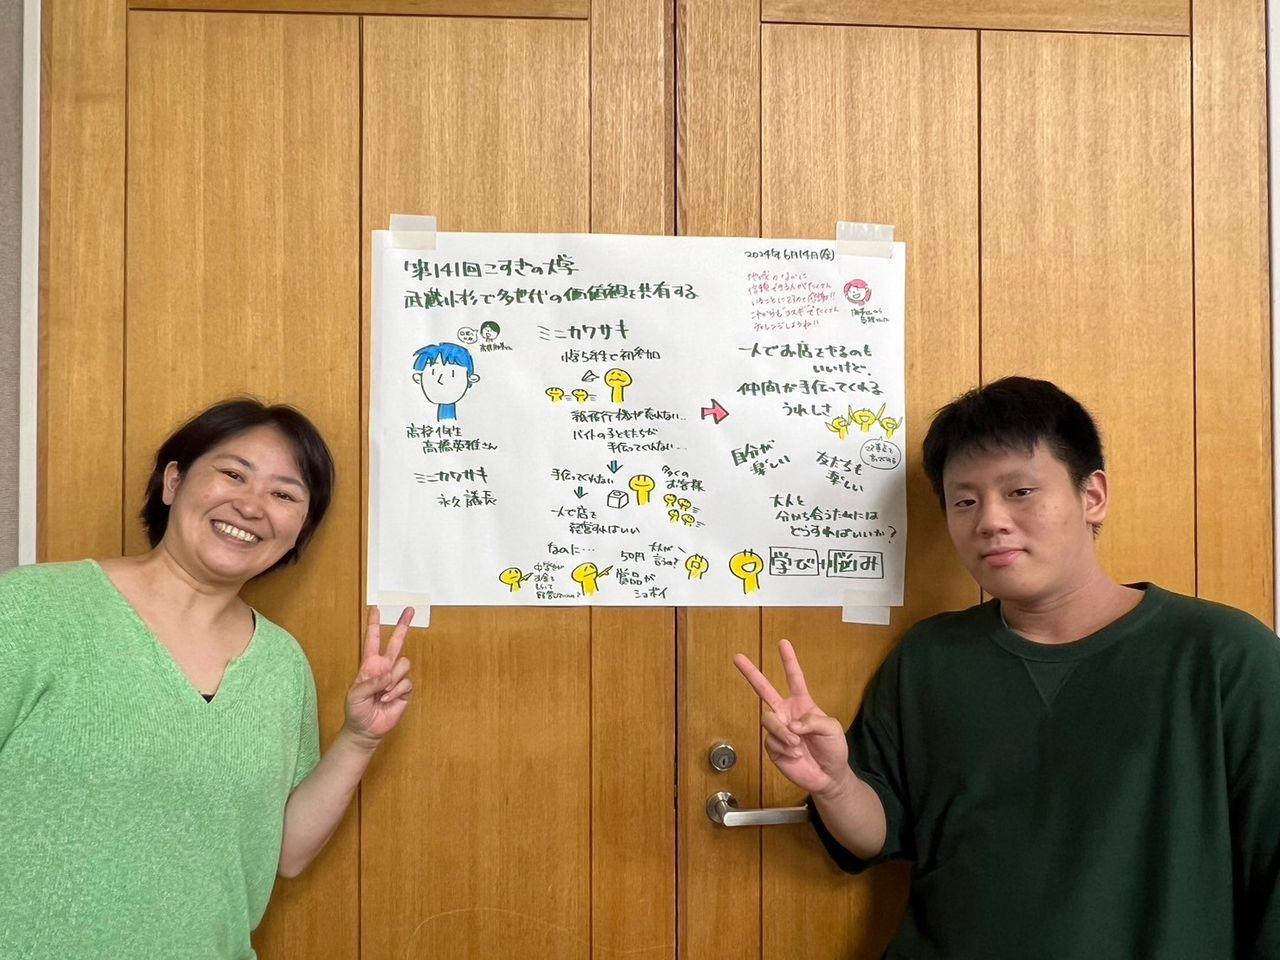 第141回こすぎの大学
武蔵小杉で多世代の価値観を共有する
2024年6月14日(金)
地域のなかに
信頼できる人がたくさん
いることに
これからもコスギでたくさん
チャレンジしましょうね!!
高校1年生
高橋英雅さん
ミニカワサキ
永久議長
ミニカワサキ
小学5年生で初参加
紙飛行機が売れない…
バイトの子どもたちが
手伝ってくれない…
手伝ってくれない
一人で店を
経営すればいい
多くの
お客様
なのに…
中学生が
お金を
もらって
50円
賞品が
ショボイ
大人が
言うの?
一人でお店をやるのも
いいけど、
仲間が手伝ってくれる
うれしさ
自分が
楽しい
友だちも
楽しい
大人と
分かち合うためには
どうすればいいか?
学び+悩み